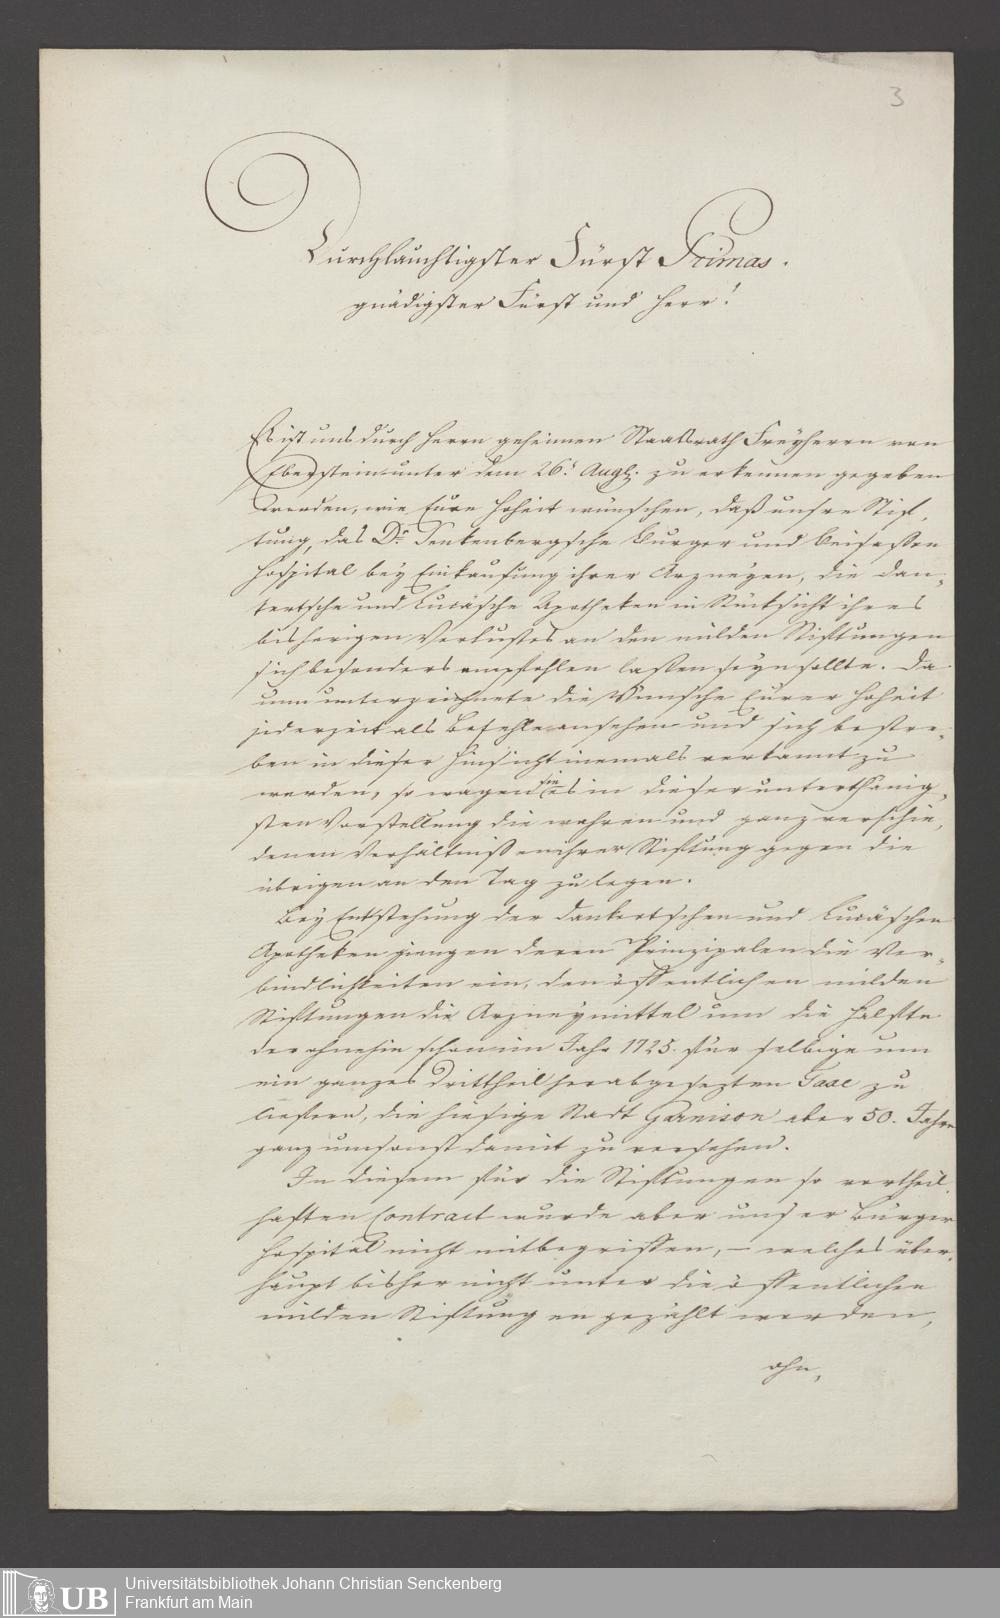 3
Durchlauchtigster Fürst Primas.
gnädigster Fürst und Herr!
Es ist uns durch Herrn geheimen Staatsrath Freyherrn von
Eberstein unter dem 26t. Augst. zu erkennen gegeben
worden, wie Eure Hoheit wünschen, daß unsre Stif,
tung, das Dr. Senkenbergsche Burger und Beisaßen
Hospital bey Einkaufung ihrer Arzneyen, die Dan,
kertsche und Lucäsche Apotheken in Rücksicht ihres
bisherigen Verlustes an den milden Stiftungen
sich besonders empfohlen laßen seyn sollte. Da
nun unterzeichnete die Wünsche Eurer Hoheit
jederzeit als Befehle ansehen und sich bestre,
ben in dieser Hinsicht niemals verkannt zu
werden, so wagen sie es in dieser unterthänig,
sten Vorstellung die wahren und ganz verschie,
denen Verhältniße ihrer Stiftung gegen die
übrigen an den Tag zu legen.
Bey Entstehung der Dankertschen und Lucäschen
Apotheken giengen deren Prinzipalen die Ver,
bindlichkeiten ein, den öffentlichen milden
Stiftungen die Arzneymittel um die Hälfte
der ohnehin schon im Jahr 1725. für selbige um
ein ganzes Drittheil herabgesezten Taxe zu
liefern, die hiesige Stadt Garnison aber 50. Jahre
ganz umsonst damit zu versehen.
In diesem für die Stiftungen so vortheil,
haften Contract wurde aber unser Burger
Hospital nicht mitbegriffen, – welches über,
haupt bisher nicht unter die öffentlichen
milden Stiftungen gezählt worden,
ohn,
UB
Universitätsbibliothek Johann Christian Senckenberg
Frankfurt am Main